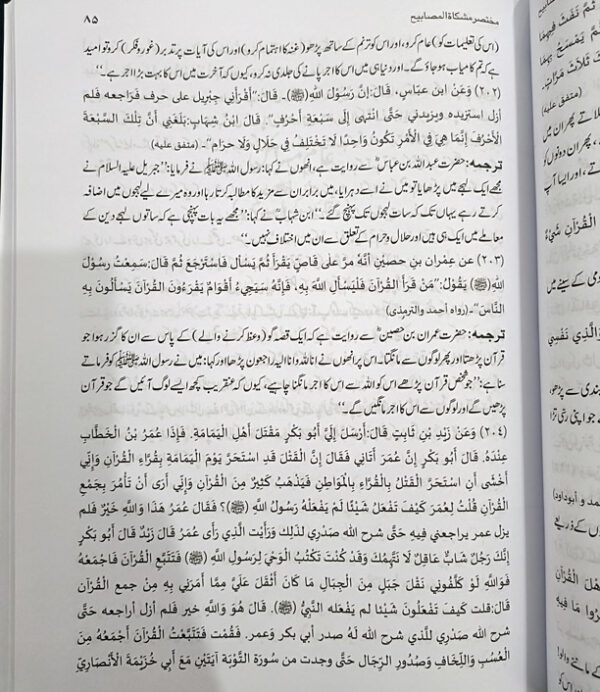 مختصر مشکاۃ المصابیح
۸۵
(اس کی تعلیمات کو) عام کرو، اور اس کو ترنم کے ساتھ پڑھو (غنہ کا اہتمام کرو) اور اس کی آیات پر تدبر (غور و فکر) کرو تو امید
ہے کہ تم کامیاب ہو جاؤ گے۔ اور دنیا ہی میں اس کا اجر پانے کی جلدی نہ کرو، کیوں کہ آخرت میں اس کا بہت بڑا اجر ہے۔"
(٢٠٢) وَعَنِ ابن عبّاسٍ، قَالَ: إنَّ رَسُوْلَ اللهِ(ﷺ)۔ قَالَ:"أقْرَأَنِي جِبْرِيل على حرف فراجعته فلم
أزل استزيده ويزيدني حتَّى انْتهى إِلى سَبْعَةِ أحْرُفٍ". قَالَ ابْنُ شِهَابٍ:بَلَغَنِي أنَّ تِلْكَ السَّبْعَةَ
الْأحْرُفَ إنَّمَا هِيَ فِي الْأَمْرِ تَكُونُ وَاحِدًا لَا تَخْتَلِفُ فِي حَلَالٍ وَلَا حرَامٍ"۔ (متفق علیہ)
ترجمہ: حضرت عبد اللہ بن عباسؓ سے روایت ہے، انھوں نے کہا: رسول اللہ ﷺ نے فرمایا: "جبریل علیہ السلام نے
مجھے ایک لہجے میں پڑھایا تو میں نے اسے دہرایا، میں برابر ان سے مزید کا مطالبہ کرتا رہا اور وہ میرے لیے لہجوں میں اضافہ
کرتے رہے یہاں تک کہ سات لہجوں تک پہنچ گئے۔" ابن شہابؒ نے کہا: "مجھے یہ بات پہنچی ہے کہ ساتوں لہجے دین کے
معاملے میں ایک ہی ہیں اور حلال و حرام کے تعلق سے ان میں اختلاف نہیں۔"
(٢٠٣) عن عِمْران بن حصينٍ أنَّهُ مرَّ عَلى قَاصٍّ يَقْرَأ ثُمَّ يَسْأل فَاسْتَرْجَعَ ثُمَّ قَالَ:سَمِعْتُ رسُوْلَ
اللهِ(ﷺ) يَقُوْلُ:"مَنْ قَرَأَ الْقُرآنَ فَلْيَسْأَلِ اللهَ بِهِ، فَإِنَّهُ سَيَجِيْءُ أقْوَامٌ يَقْرَءُوْنَ الْقُرْآنَ يَسْألُوْنَ بِهِ
النَّاسَ"۔ (رواه احمد والترمذی)
ترجمہ: حضرت عمران بن حصینؓ سے روایت ہے کہ ایک قصہ گو (وعظ کرنے والے) کے پاس سے ان کا گزر ہوا جو
قرآن پڑھتا اور پھر لوگوں سے مانگتا۔ اس پر انھوں نے انا للہ وانا الیہ راجعون پڑھا اور کہا: میں نے رسول اللہ ﷺ کو فرماتے
سنا ہے: "جو شخص قرآن پڑھے اس کو اللہ سے اس کا اجر مانگنا چاہیے، کیوں کہ عنقریب کچھ ایسے لوگ آئیں گے جو قرآن
پڑھیں گے اور لوگوں سے اس کا اجر مانگیں گے۔"
(٢٠٤) وَعَنْ زَيْدِ بْنِ ثَابِتٍ قَالَ:أَرْسَلَ إِلَيَّ أَبُو بَكْرٍ مَقْتَلَ أَهْلِ الْيَمَامَةِ. فَإِذَا عُمَرُ بْنُ الْخَطَّابِ
عِنْدَهُ. قَالَ أَبُو بَكْرٍ إِنَّ عُمَرَ أَتَانِي فَقَالَ إِنَّ الْقَتْلَ قَدِ اسْتَحَرَّ يَوْمَ الْيَمَامَةِ بِقُرَّاءِ الْقُرْآنِ وَإِنِّي
أَخْشَى أَنِ اسْتَحَرَّ الْقَتْلُ بِالْقُرَّاءِ بِالْمَوَاطِنِ فَيَذْهَبُ كَثِيرٌ مِنَ الْقُرْآنِ وَإِنِّي أَرَى أَنْ تَأْمُرَ بِجَمْعِ
الْقُرْآنِ قُلْتُ لِعُمَرَ كَيْفَ تَفْعَلُ شَيْئًا لَمْ يَفْعَلْهُ رَسُولُ اللهِ (ﷺ)؟ فَقَالَ عُمَرُ هَذَا وَاللهِ خَيْرٌ فَلم
يزل عمر يراجعني فيهِ حَتَّى شرح الله صَدْرِي لذَلِك وَرَأَيْت الَّذِي رَأى عُمَرُ قَالَ زَيْدٌ قَالَ أَبُو بَكْرٍ
إِنَّكَ رَجُلٌ شَابٌّ عَاقِلٌ لَا نَتَّهِمُكَ وَقَدْ كُنْتَ تَكْتُبُ الْوَحْيَ لِرَسُولِ اللهِ (ﷺ) فَتَتَبَّعِ الْقُرْآنَ فَاجْمَعْهُ
فَوَاللهِ لَوْ كَلَّفُونِي نَقْلَ جَبَلٍ مِنَ الْجِبَالِ مَا كَانَ أَثْقَلَ عَلَيَّ مِمَّا أَمَرَنِي بِهِ مِنْ جمع القُرْآن
قَالَ:قلت كَيفَ تَفْعَلُونَ شَيْئا لم يَفْعَله النَّبِيُّ (ﷺ). قَالَ هُوَ وَاللهِ خير فَلم أزل أراجعه حَتَّى
شرح الله صَدْرِي للَّذي شرح الله لَهُ صدر أبي بكر وَعمر. فَقُمْت فَتَتَبَّعْتُ الْقُرْآنَ أَجْمَعُهُ مِنَ
الْعُسُبِ وَاللِّخَافِ وَصُدُورِ الرِّجَال حَتَّى وجدت من سُورَة التَّوْبَة آيَتَيْنِ مَعَ أَبِي خُزَيْمَةَ الْأَنْصَارِيِّ